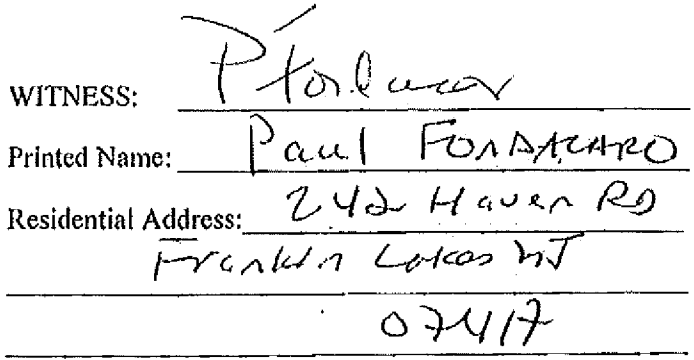 WITNESS:
Printed Name: Paul FONDACARO
Residential Address: 242 Haven RD
Franklin Lakes NJ
07417